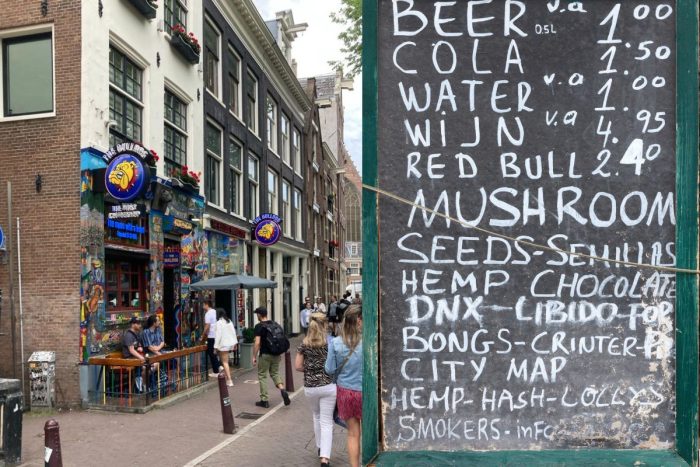 THE BULLDOG
THE BULLDOG
BEER 0.5L v.a 1.00
COLA 1.50
WATER v.a 1.00
WIJN v.a 4.95
RED BULL 2.40
MUSHROOM
SEEDS-SEMILLAS
HEMP CHOCOLATE
DNX-LIBIDO POP
BONGS-CRINTER-
CITY MAP
HEMP-HASH-LOLLYS
SMOKERS-info